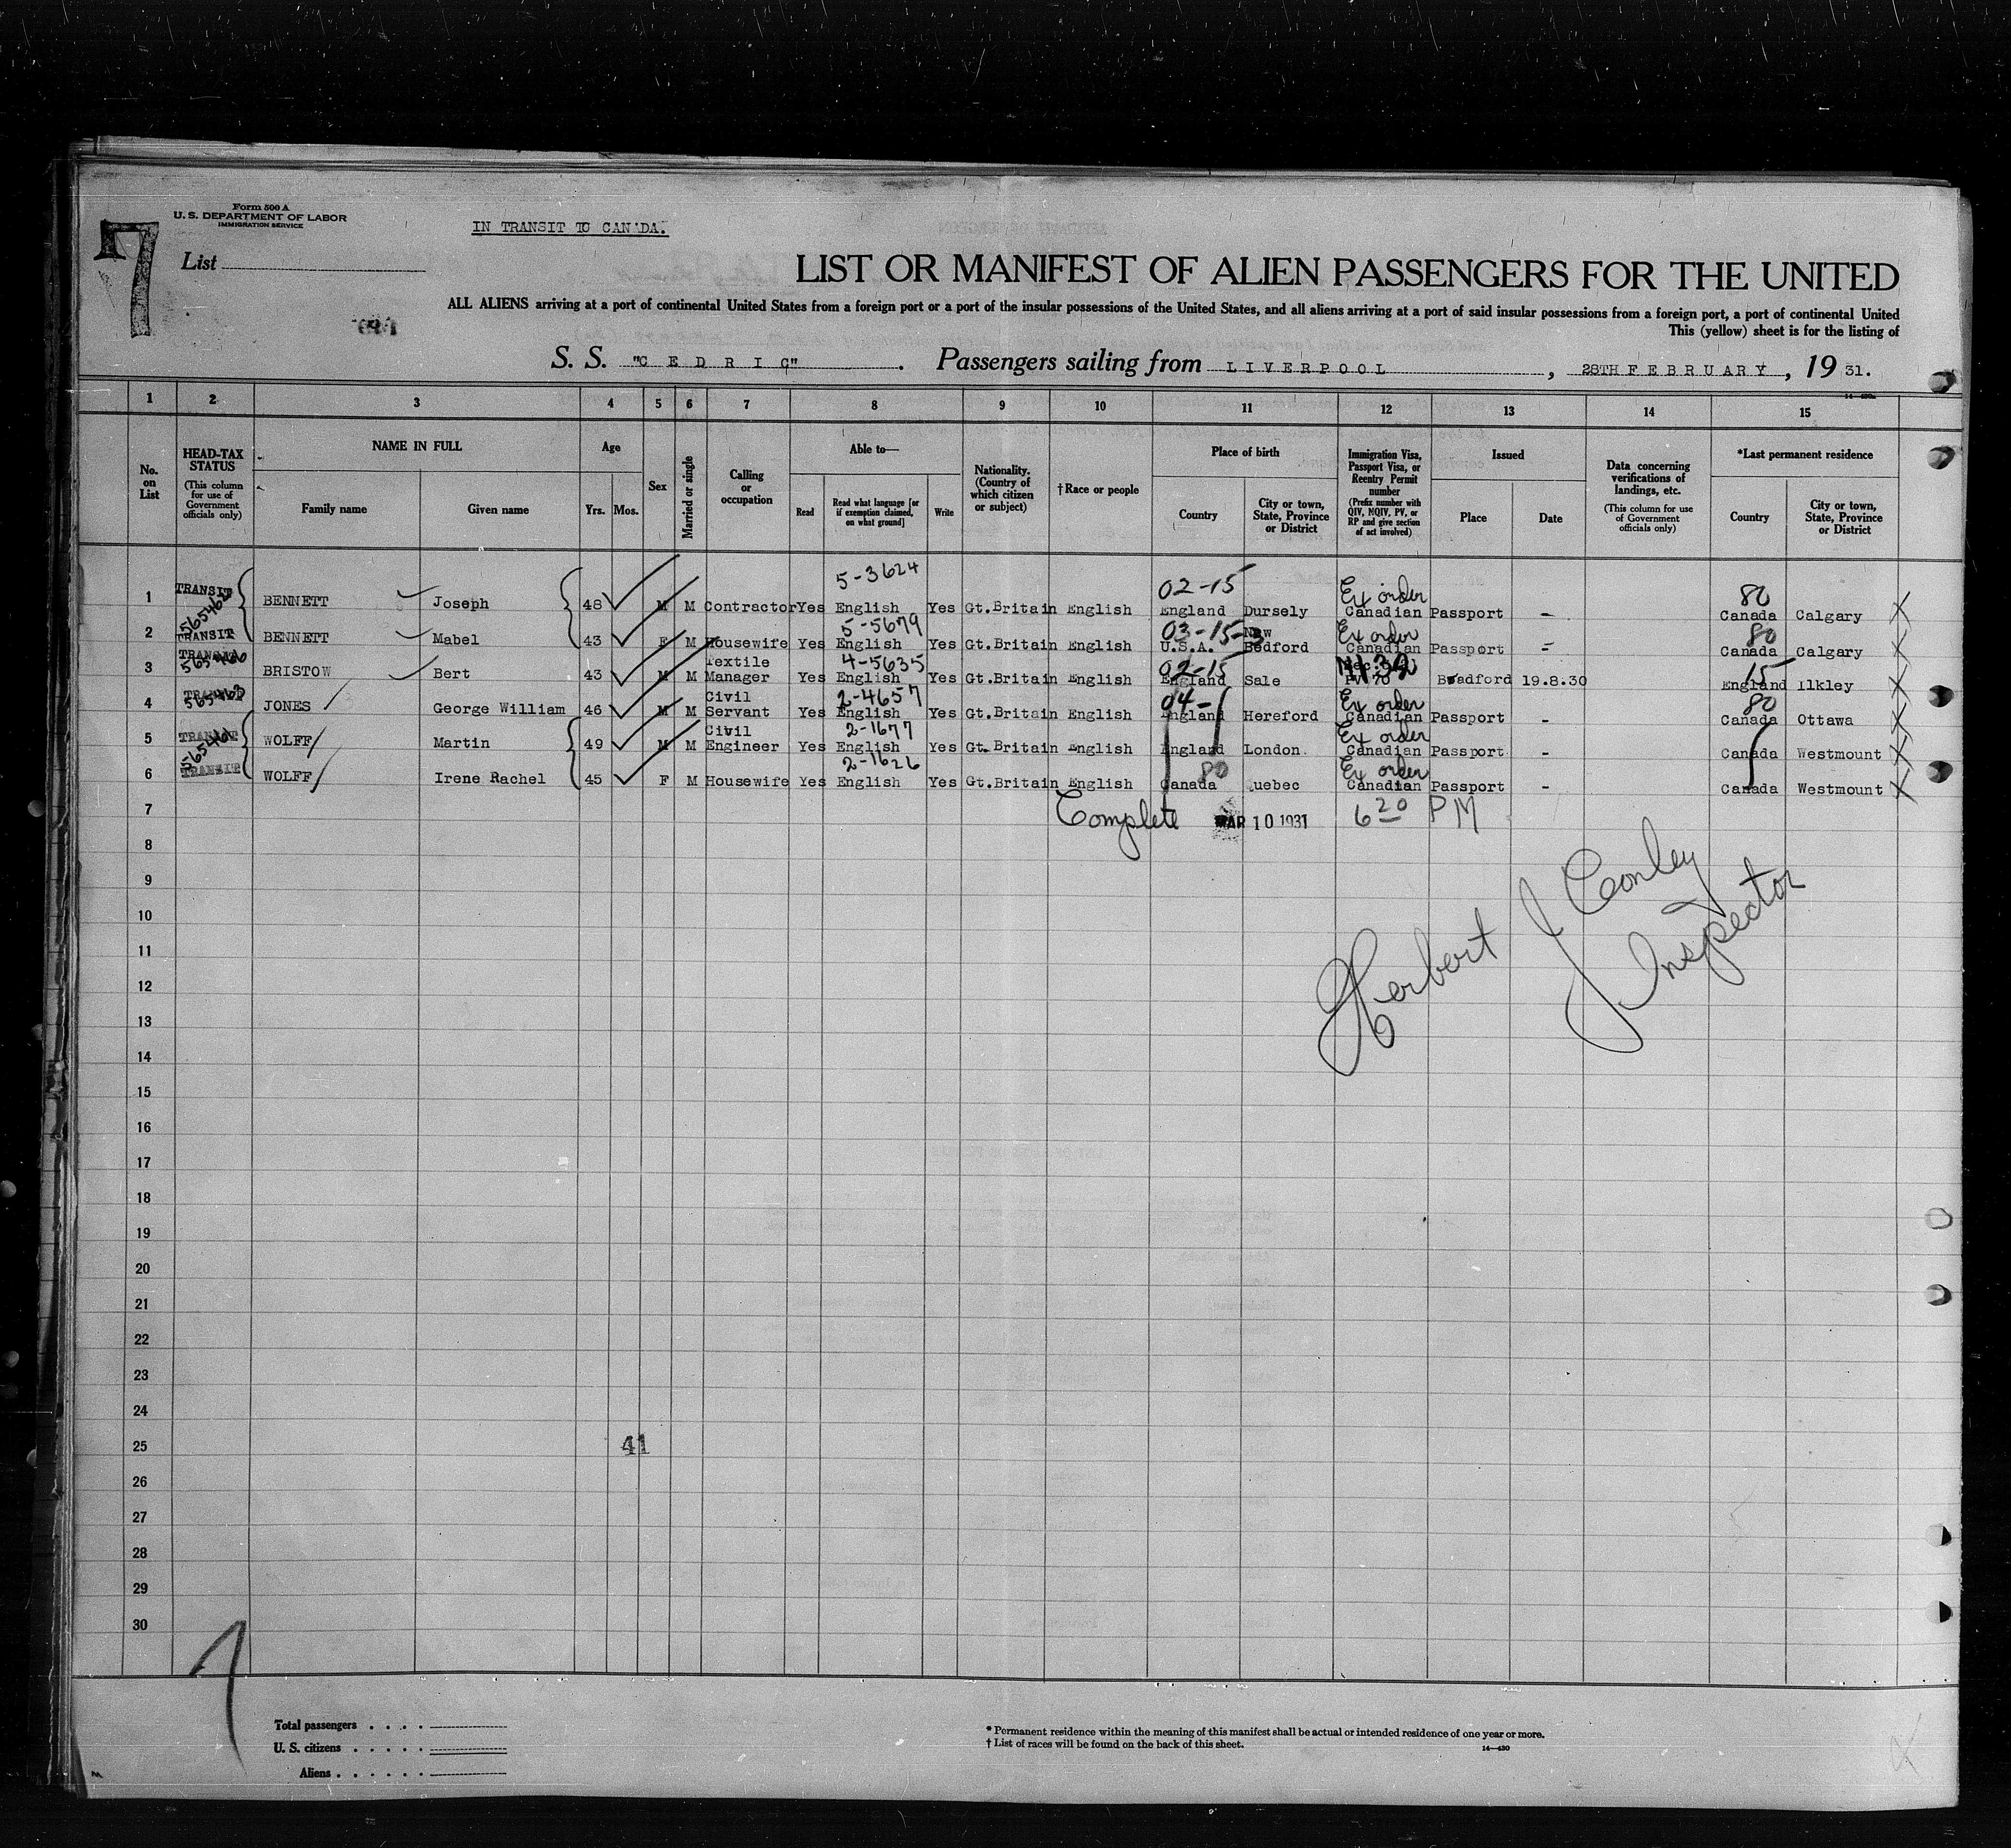 Form 500 A
U. S. DEPARTMENT OF LABOR
IMMIGRATION SERVICE
7
IN TRANSIT TO CANADA.
List
LIST OR MANIFEST OF ALIEN PASSENGERS FOR THE UNITED
ALL ALIENS arriving at a port of continental United States from a foreign port or a port of the insular possessions of the United States, and all aliens arriving at a port of said insular possessions from a foreign port, a port of continental United
This (yellow) sheet is for the listing of
S. S. "CEDRIC". Passengers sailing from LIVERPOOL, 28TH FEBRUARY, 1931.
14-430
1 2 3 4 5 6 7 8 9 10 11 12 13 14 15
No. on List
HEAD-TAX STATUS (This column for use of Government officials only)
NAME IN FULL
Family name Given name
Age
Yrs. Mos.
Sex
Married or single
Calling or occupation
Able to—
Read Read what language [or if exemption claimed, on what ground] Write
Nationality. (Country of which citizen or subject)
†Race or people
Place of birth
Country City or town, State, Province or District
Immigration Visa, Passport Visa, or Reentry Permit number (Prefix number with QIV, NQIV, PV, or RP and give section of act involved)
Issued
Place Date
Data concerning verifications of landings, etc. (This column for use of Government officials only)
*Last permanent residence
Country City or town, State, Province or District
5-3624 02-15 Ex order 80
1 TRANSIT BENNETT Joseph 48 M M Contractor Yes English Yes Gt.Britain English England Dursely Canadian Passport - Canada Calgary
5-5679 03-15- New Ex order 80
2 TRANSIT BENNETT Mabel 43 F M Housewife Yes English Yes Gt.Britain English U.S.A. Bedford Canadian Passport - Canada Calgary
TRANSIT 565466 Textile 4-5635 02-15 15
3 BRISTOW Bert 43 M M Manager Yes English Yes Gt.Britain English England Sale Bradford 19.8.30 England Ilkley
TRANSIT 565463 Civil 2-4657 04- Ex order 80
4 JONES George William 46 M M Servant Yes English Yes Gt.Britain English England Hereford Canadian Passport - Canada Ottawa
Civil 2-1677 Ex order
5 TRANSIT WOLFF Martin 49 M M Engineer Yes English Yes Gt.Britain English England London Canadian Passport - Canada Westmount
2-1626 80 Ex order
6 TRANSIT WOLFF Irene Rachel 45 F M Housewife Yes English Yes Gt.Britain English Canada Quebec Canadian Passport - Canada Westmount
7 Complete MAR 10 1931 6 20 PM
8
9
10
11
12
13
14
15
16
17
18
19
20
21
22
23
24
25
26
27
28
29
30
Herbert J Conley
Inspector
41
Total passengers
U. S. citizens
Aliens
* Permanent residence within the meaning of this manifest shall be actual or intended residence of one year or more.
† List of races will be found on the back of this sheet.
14-430